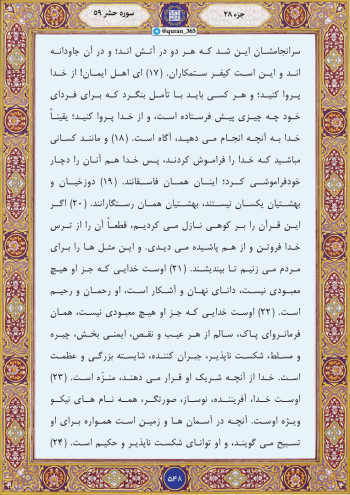 جزء ۲۸
سوره حشر ۵۹
@quran_365
سرانجامشان این شد که هر دو در آتش اند؛ و در آن جاودانه
اند و این است کیفر ستمکاران. (۱۷) ای اهل ایمان! از خدا
پروا کنید؛ و هر کسی باید با تأمل بنگرد که برای فردای
خود چه چیزی پیش فرستاده است، و از خدا پروا کنید؛ یقیناً
خدا به آنچه انجام می دهید، آگاه است. (۱۸) و مانند کسانی
مباشید که خدا را فراموش کردند، پس خدا هم آنان را دچار
خودفراموشی کرد؛ اینان همان فاسقانند. (۱۹) دوزخیان و
بهشتیان یکسان نیستند، بهشتیان همان رستگارانند. (۲۰) اگر
این قرآن را بر کوهی نازل می کردیم، قطعاً آن را از ترس
خدا فروتن و از هم پاشیده می دیدی. و این مثل ها را برای
مردم می زنیم تا بیندیشند. (۲۱) اوست خدایی که جز او هیچ
معبودی نیست، دانای نهان و آشکار است، او رحمان و رحیم
است. (۲۲) اوست خدایی که جز او هیچ معبودی نیست، همان
فرمانروای پاک، سالم از هر عیب و نقص، ایمنی بخش، چیره
و مسلط، شکست ناپذیر، جبران کننده، شایسته بزرگی و عظمت
است. خدا از آنچه شریک او قرار می دهند، منزّه است. (۲۳)
اوست خدا، آفریننده، نوساز، صورتگر، همه نام های نیکو
ویژه اوست. آنچه در آسمان ها و زمین است همواره برای او
تسبیح می گویند، و او توانای شکست ناپذیر و حکیم است. (۲۴)
۵۴۸